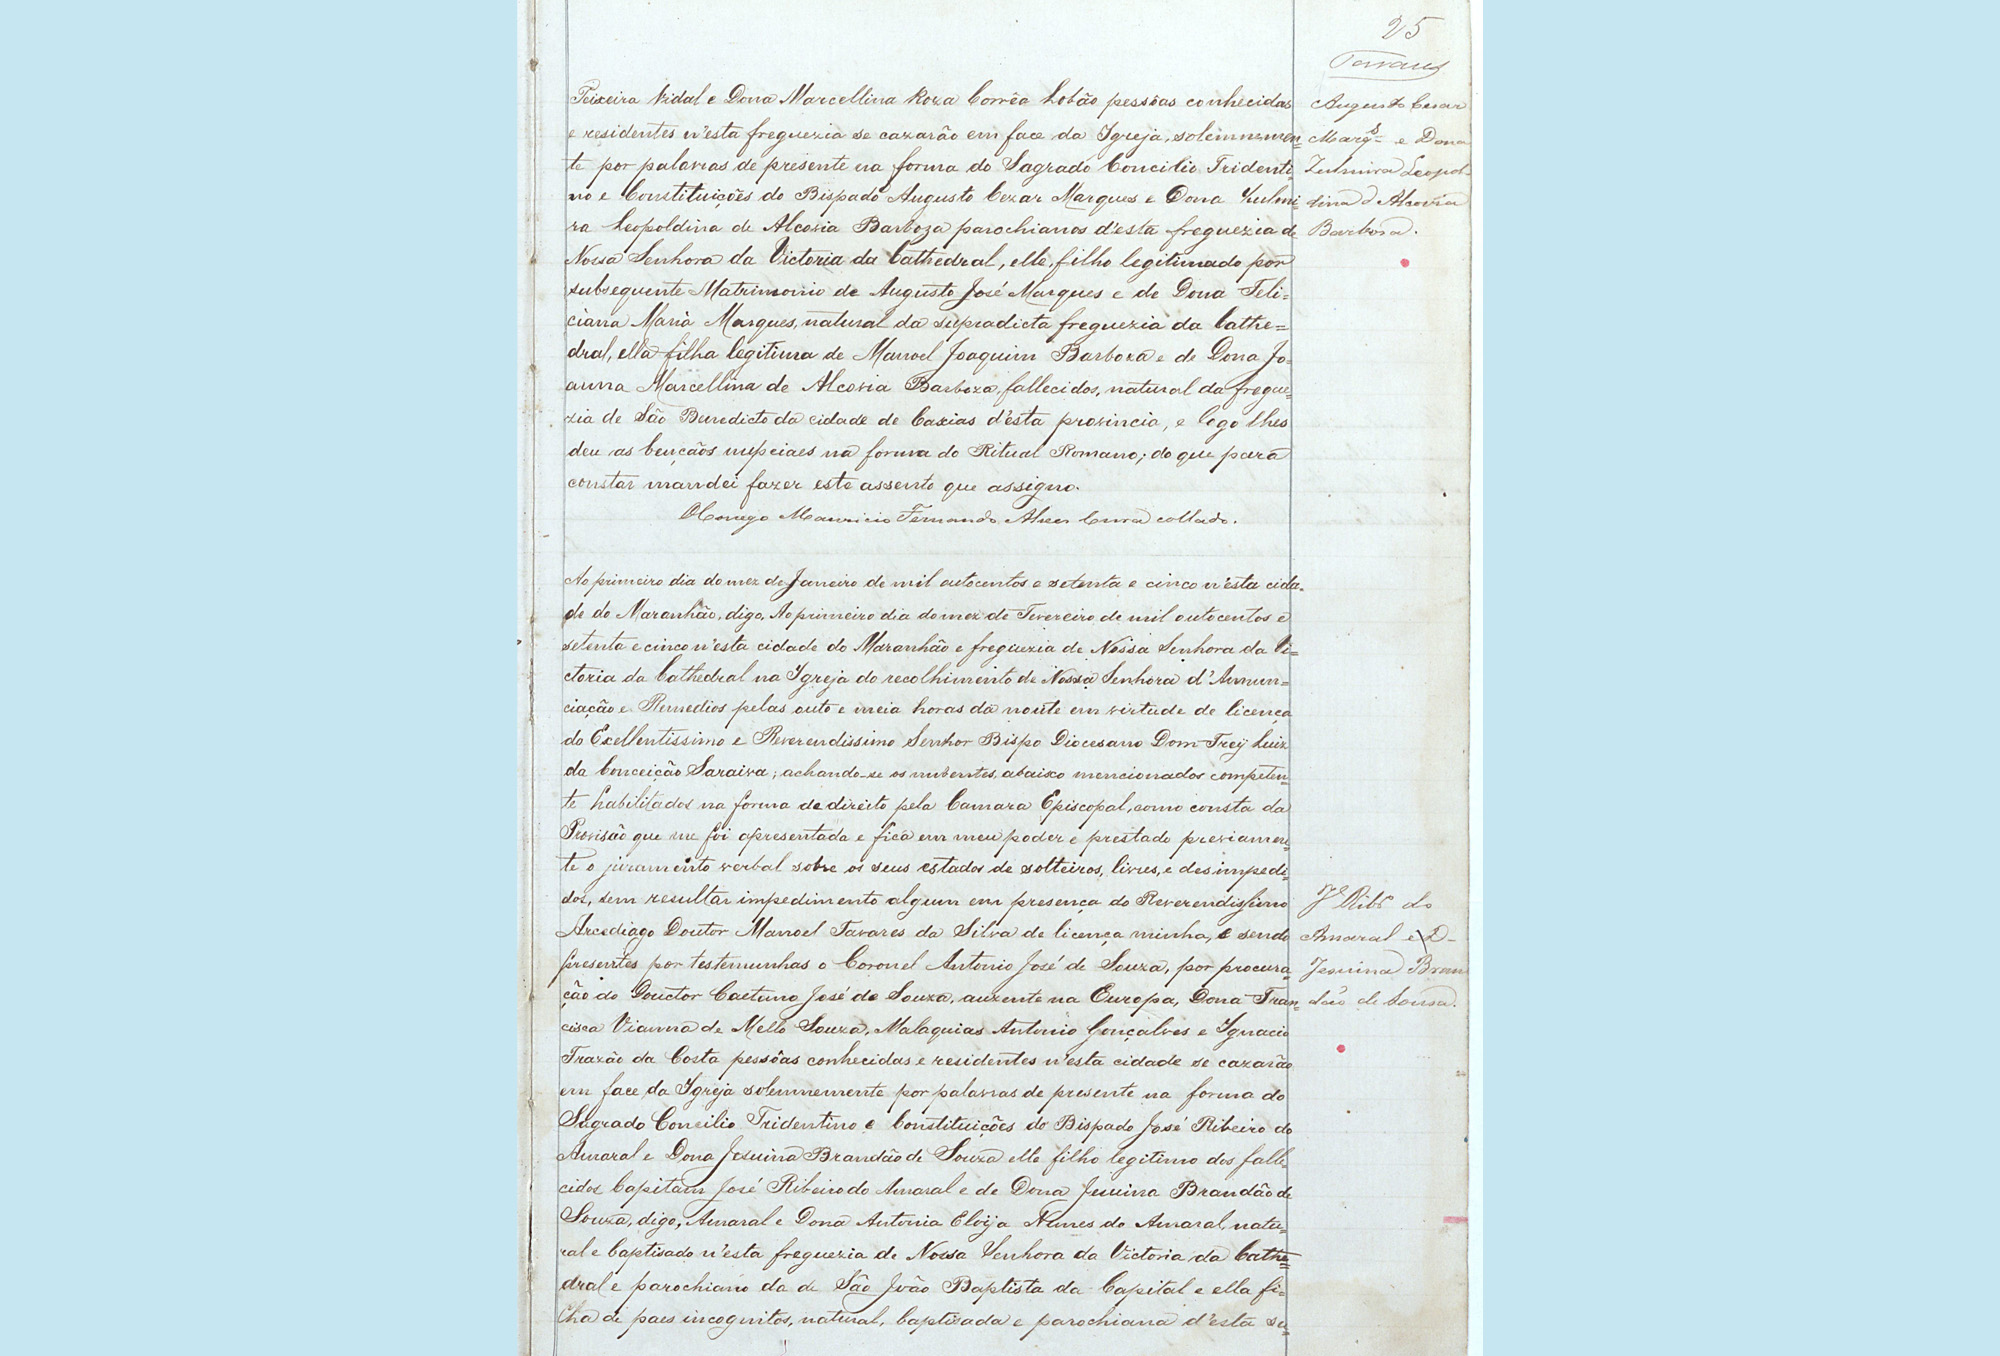 25
Tavares
Teixeira Vidal e Dona Marcellina Roza Corrêa Lobão pessôas conhecidas
e residentes n'esta freguezia se cazarão em face da Igreja, solemnemen=
te por palavras de presente na forma do Sagrado Concilio Tridenti=
no e Constituições do Bispado Augusto Cezar Marques e Dona Zulmi=
ra Leopoldina de Alcovia Barboza parochianos d'esta freguezia de
Nossa Senhora da Victoria da Cathedral, elle, filho legitimado por
subsequente Matrimonio de Augusto José Marques e de Dona Feli=
ciana Maria Marques, natural da supradicta freguezia da Cathe=
dral, ella filha legitima de Manoel Joaquim Barboza e de Dona Jo=
anna Marcellina de Alcovia Barboza, fallecidos, natural da fregue=
zia de São Benedicto da cidade de Caxias d'esta provincia, e logo lhes
deu as bençãos nupciaes na forma do Ritual Romano; do que para
constar mandei fazer este assento que assigno.
O Conego Mauricio Fernando Alves Cura collado.
Augusto Cezar
Marqs e Dona
Zulmira Leopol-
dina d'Alcovia
Barbosa.
Ao primeiro dia do mez de Janeiro de mil outocentos e setenta e cinco n'esta cida=
de do Maranhão, digo, Ao primeiro dia do mez de Fevereiro de mil outocentos e
setenta e cinco n'esta cidade do Maranhão e freguezia de Nossa Senhora da Vi=
ctoria da Cathedral na Igreja do recolhimento de Nossa Senhora d'Annun=
ciação e Remedios pelas outo e meia horas da noute em virtude de licença
do Excellentissimo e Reverendissimo Senhor Bispo Diocesano Dom Frey Luiz
da Conceição Saraiva; achando-se os nubentes abaixo mencionados competen=
te habilitados na forma de direito pela Camara Episcopal, como consta da
Provisão que me foi apresentada e fica em meu poder e prestado previamen=
te o juramento verbal sobre os seus estados de solteiros, livres, e desimpedi=
dos, sem resultar impedimento algum em presença do Reverendissimo
Arcediago Doutor Manoel Tavares da Silva de licença minha, e sendo
presentes por testemunhas o Coronel Antonio José de Souza, por procura=
ção do Douctor Caetano José de Souza, auzente na Europa, Dona Fran=
cisca Vianna de Mello Souza, Malaquias Antonio Gonçalves e Ignacio
Frazão da Costa pessôas conhecidas e residentes n'esta cidade se cazarão
em face da Igreja solemnemente por palavras de presente na forma do
Sagrado Concilio Tridentino e Constituições do Bispado José Ribeiro do
Amaral e Dona Jesuina Brandão de Souza elle filho legitimo dos falle=
cidos Capitam José Ribeiro do Amaral e de Dona Jesuina Brandão de
Souza, digo, Amaral e Dona Antonia Eloija Nunes do Amaral, natu=
ral e baptisado n'esta freguezia de Nossa Senhora da Victoria da Cathe=
dral e parochiano da de São João Baptista da Capital e ella fi=
lha de paes incognitos, natural, baptisada e parochiana d'esta su=
Je Ribro do
Amaral e D-
Jesuina Bran
dão de Sousa.